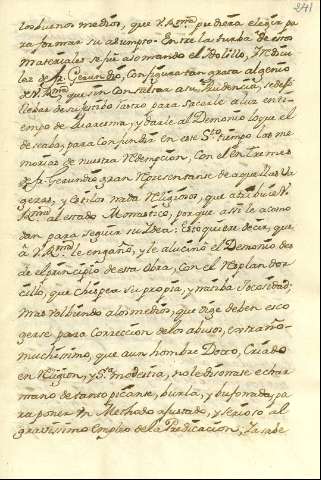 241
los buenos medios, que V. Rma. pudiera elegir pa
ra formar su asumpto. Entre la turba de estos
materiales se fue asomando el Idolillo, y
de Fr. Gerundio, con figura tan grata al genio
de V. Rma. que sin consultar a su Prudencia, se
de su para sacarle a luz en ti-
empo de Quaresma, y darle al Demonio lo que el
deseaba, para confundir en este Sto. tiempo las me
morias de nuestra Redempcion, con el entremes
de Fr. Gerundio gran Representante de aquellas va
geras, y estilos nada Religiosos, que atribuie V.
Rma. al estado Monastico, porque assi le acomo
dan para seguir su Idea: Esto quiere decir, que
â V. Rma. le engaño, y le alucinó el Demonio des
de el principio de esta obra, con el resplandor
cillo, que chispea su propia, y Jocosidad;
mas volbiendo a los medios, que dize deben esco
gerse para correccion de los abusos, extraño
muchissimo, que aun hombre Docto, Criado
en Religion, y Sta. modestia, no le disonase el echar
mano de tanto picante, burla, y bufonada, pa
ra poner un Methodo ajustado, y serioso al
gravissimo empleo de la Predicacion; Ya sabe